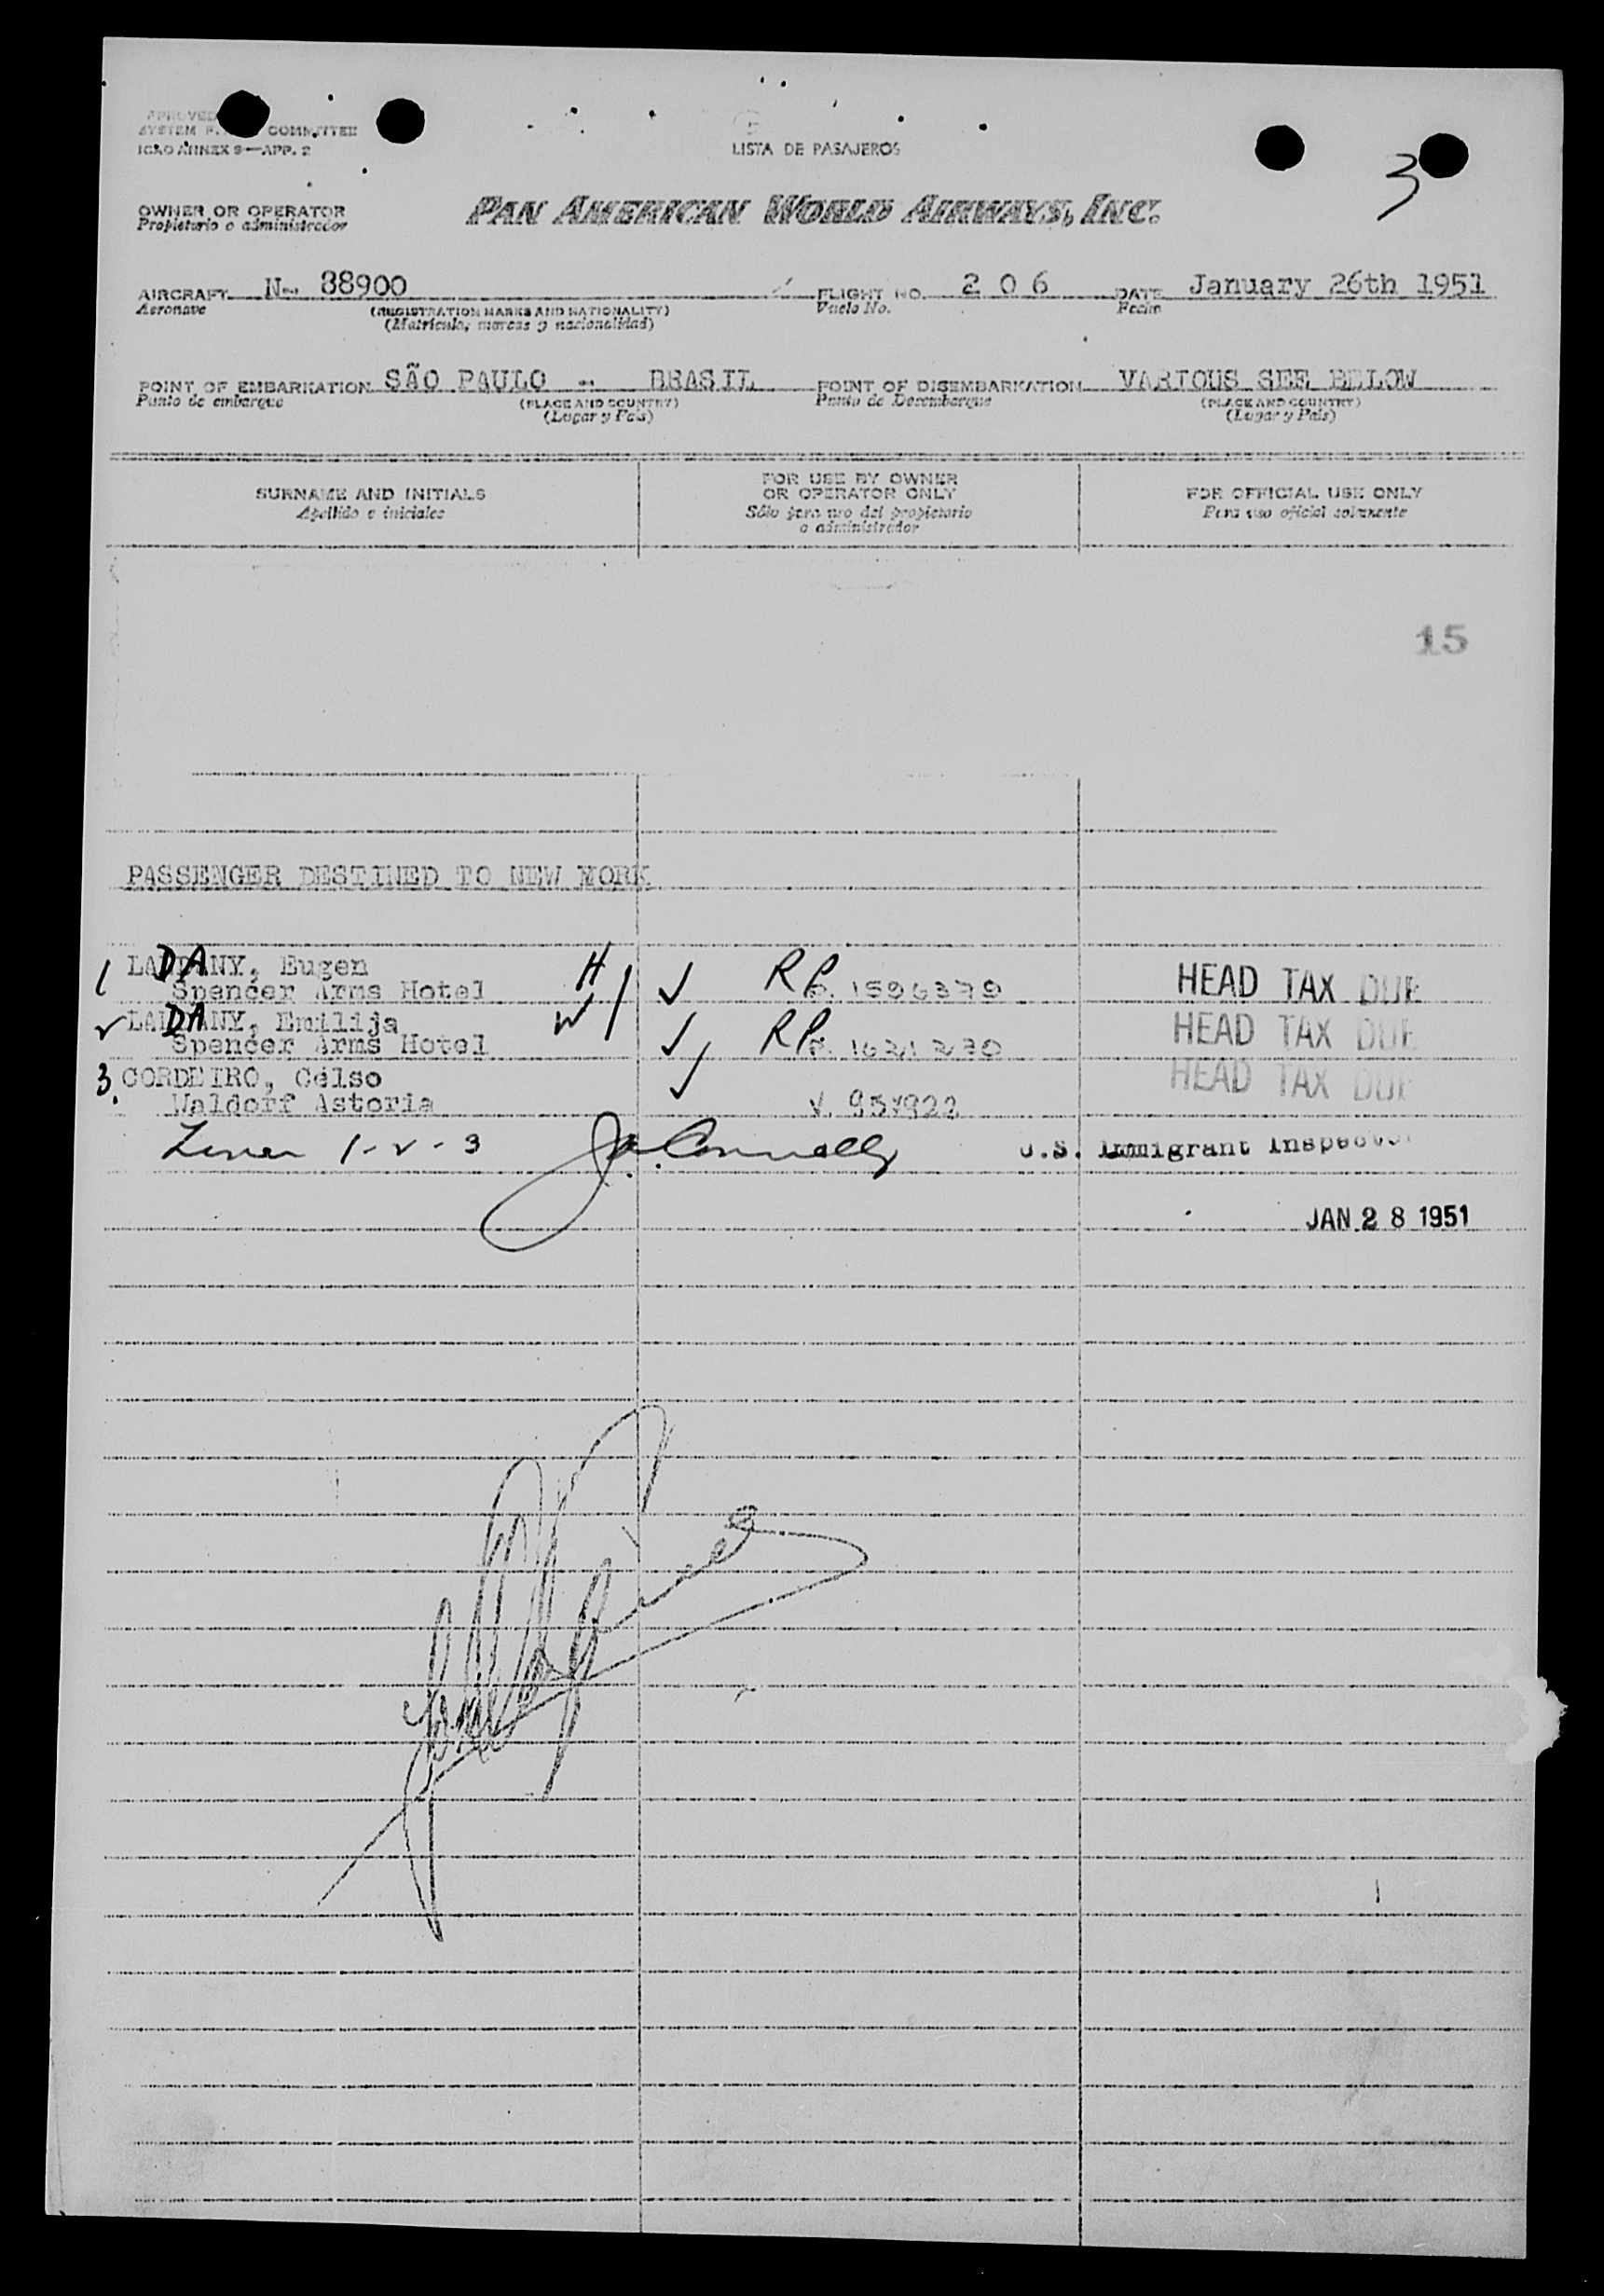 APPROVED
SYSTEM COMMITTEE
ICAO ANNEX 9—APP. 2
LISTA DE PASAJEROS
3
OWNER OR OPERATOR
Propietario o administrador
PAN AMERICAN WORLD AIRWAYS, INC.
AIRCRAFT N- 88900 FLIGHT NO. 2 0 6 DATE January 26th 1951
Aeronave (REGISTRATION MARKS AND NATIONALITY) Vuelo No. Fecha
(Matrícula, marcas y nacionalidad)
POINT OF EMBARKATION SÃO PAULO - BRASIL POINT OF DISEMBARKATION VARIOUS SEE BELOW
Punto de embarque (PLACE AND COUNTRY) Punto de Desembarque (PLACE AND COUNTRY)
(Lugar y País) (Lugar y País)
SURNAME AND INITIALS
Apellido e iniciales
FOR USE BY OWNER
OR OPERATOR ONLY
Sólo para uso del propietario
o administrador
FOR OFFICIAL USE ONLY
Para uso oficial solamente
15
PASSENGER DESTINED TO NEW YORK
1 LADANY, Eugen H RP. 1596379 HEAD TAX DUE
Spencer Arms Hotel
2 LADANY, Emilija W RP. HEAD TAX DUE
Spencer Arms Hotel
3. CORDEIRO, Celso V. HEAD TAX DUE
Waldorf Astoria
1-2-3 Connolly U.S. Immigrant Inspector
JAN 28 1951